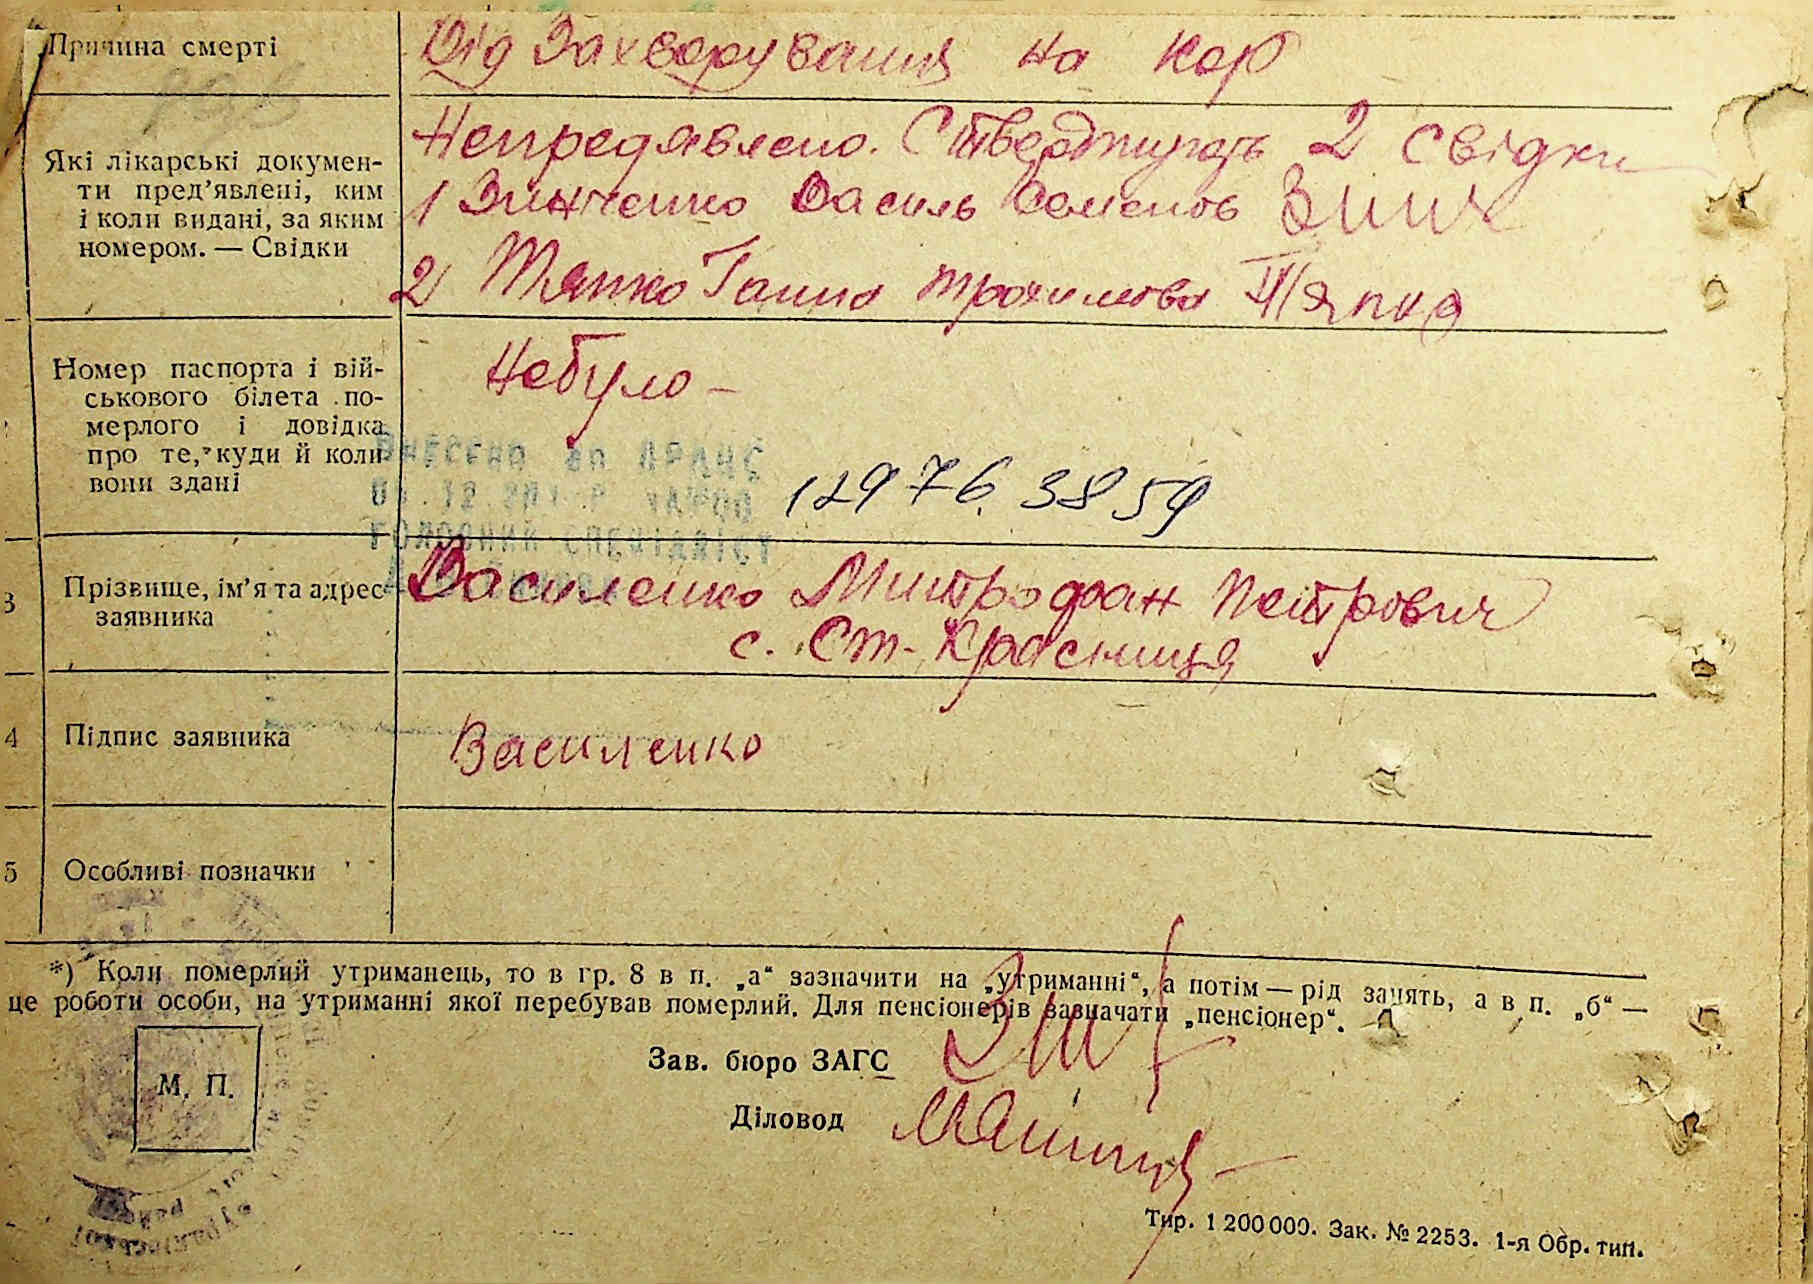 Причина смерті
Від Захворування на кор
Які лікарські докумен-
ти пред’явлені, ким
і коли видані, за яким
номером. — Свідки
Непредявлено. Стверджують 2 свідки
1 Зинченко Василь Семенов Зинч
2 Тяпко Ганна Трохимова Тяпка
Номер паспорта і вій-
ськового білета по-
мерлого і довідка
про те, куди й коли
вони здані
Небуло —
ВНЕСЕНО ДО ДРАЦС
ГОЛОВНИЙ СПЕЦІАЛІСТ
129763859
3
Прізвище, ім’я та адрес
заявника
Василенко Митрофан Петрович
с. Ст. Красниця
4
Підпис заявника
Василенко
5
Особливі позначки
*) Коли померлий утриманець, то в гр. 8 в п. „а“ зазначити на „утриманні“, а потім — рід занять, а в п. „б“ —
це роботи особи, на утриманні якої перебував померлий. Для пенсіонерів зазначати „пенсіонер“.
М. П.
Зав. бюро ЗАГС
Діловод
Тир. 1 200 000. Зак. № 2253. 1-я Обр. тип.